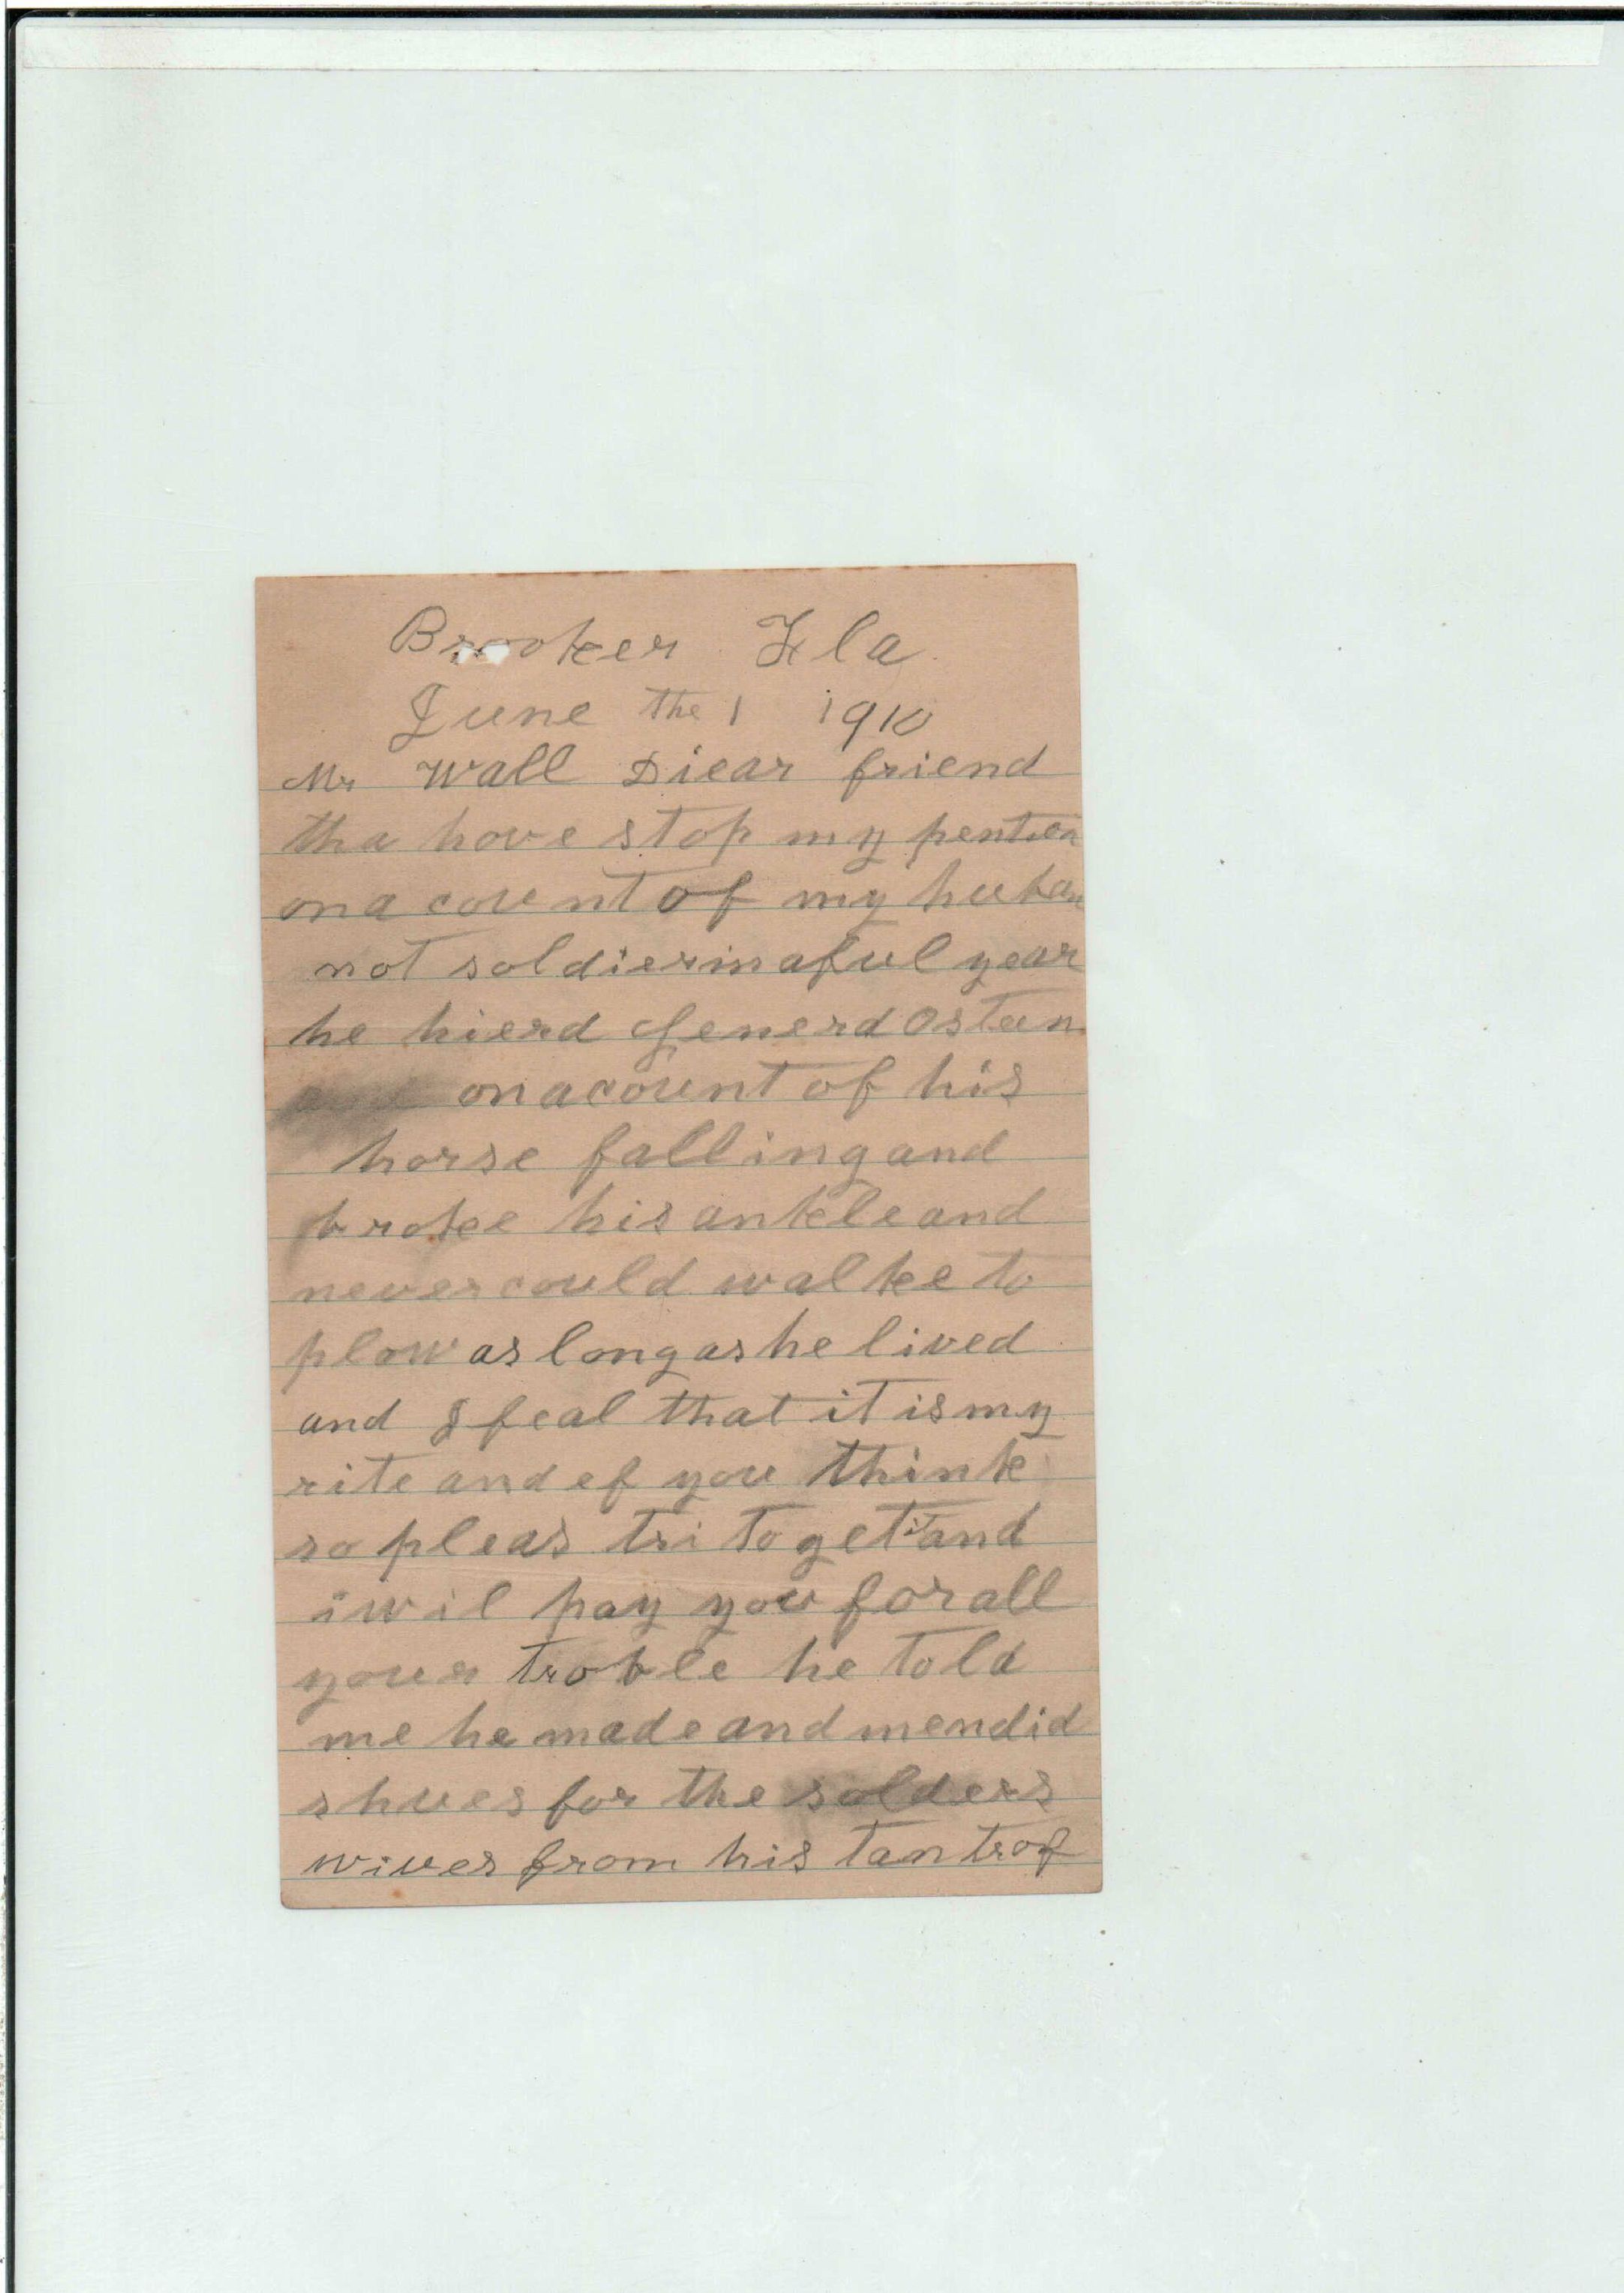 Brooker Fla
June the 1 1910
Mr Wall Diear friend
tha have stop my pention
on a count of my huban
not soldier in a ful year
he hierd Generd Osteen
on a count of his
horse falling and
broke his ankle and
never could walke to
plow as long as he lived
and I feal that it is my
rite and ef you think
so pleas tri to get it and
i wil pay you for all
your troble he told
me he made and mendid
shues for the solders
wives from his tan trof